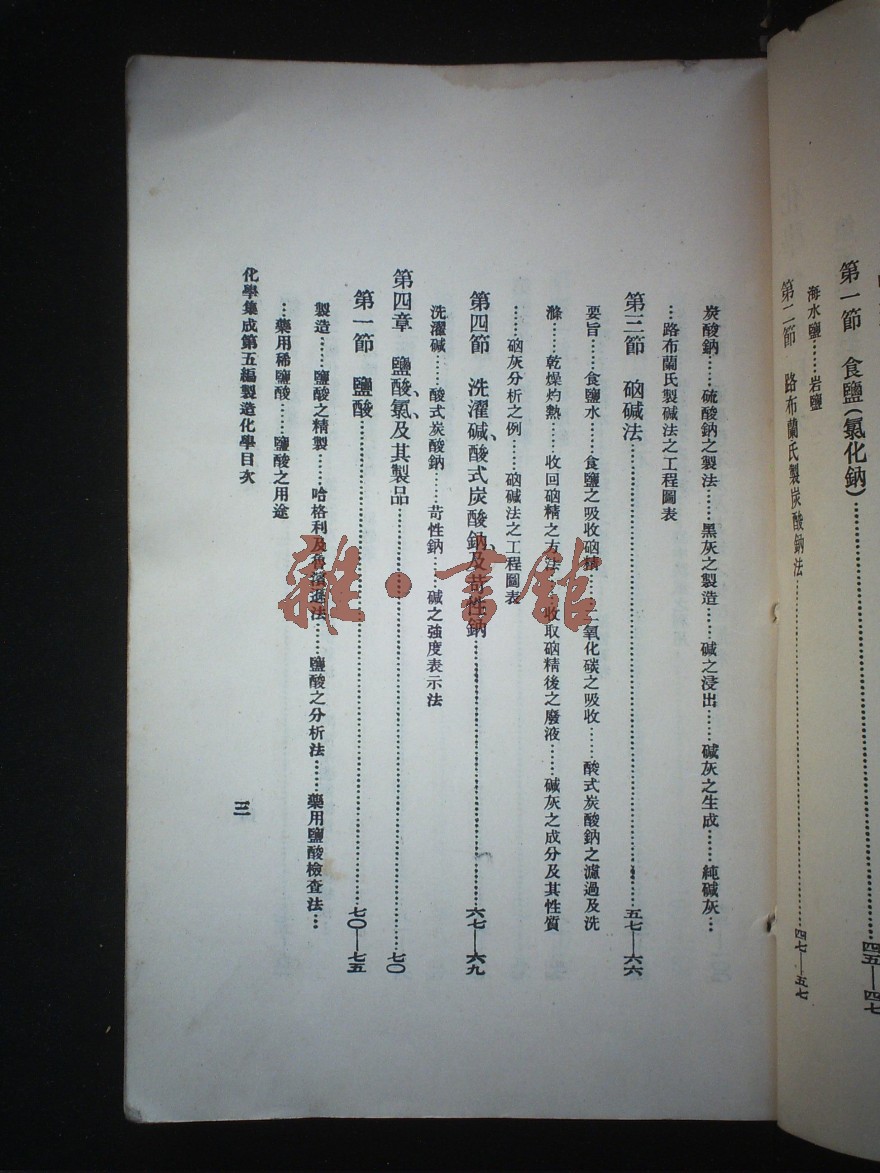 第一節　食鹽(氯化鈉)……四五—四七
海水鹽……岩鹽
第二節　路布蘭氏製炭酸鈉法……四七—五七
炭酸鈉……硫酸鈉之製法……黑灰之製造……碱之浸出……碱灰之生成……純碱灰…
…路布蘭氏製碱法之工程圖表
第三節　硇碱法……五七—六六
要旨……食鹽水……食鹽之吸收硇精……二氧化碳之吸收……酸式炭酸鈉之濾過及洗
滌……乾燥灼熱……收回硇精之方法……收取硇精後之廢液……碱灰之成分及其性質
……硇灰分析之例……硇碱法之工程圖表
第四節　洗濯碱、酸式炭酸鈉、及苛性鈉……六七—六九
洗濯碱……酸式炭酸鈉……苛性鈉……碱之強度表示法
第四章　鹽酸、氯、及其製品……七〇
第一節　鹽酸……七〇—七五
製造……鹽酸之精製……哈格利及魯濱進法……鹽酸之分析法……藥用鹽酸檢查法…
…藥用稀鹽酸……鹽酸之用途
化學集成第五編製造化學目次
三
雜·書館